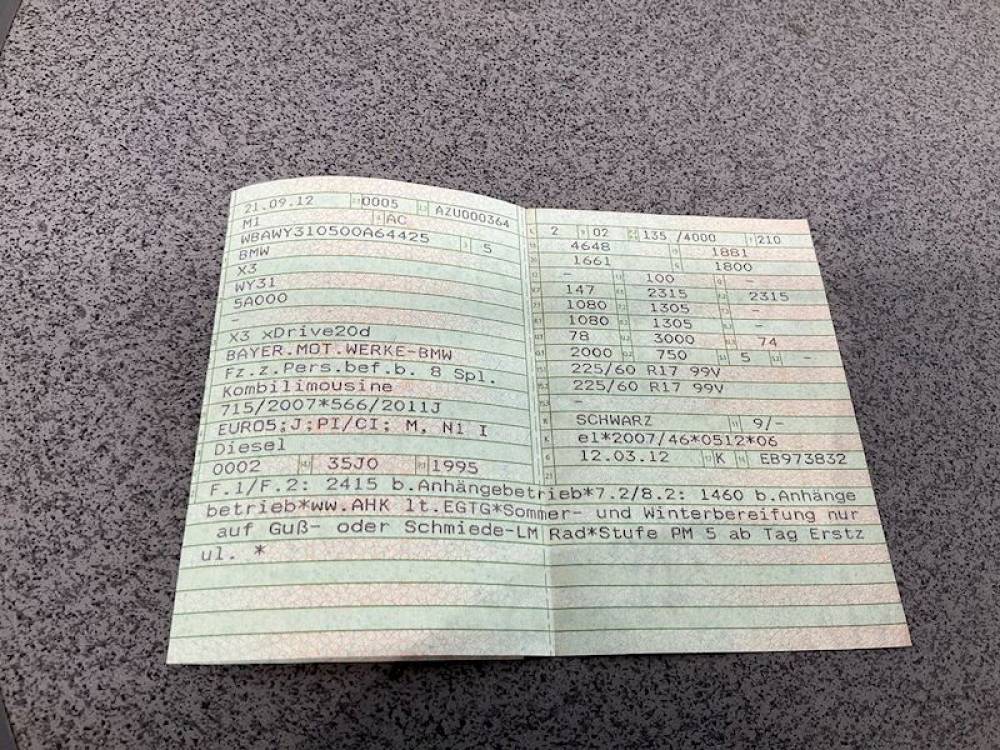 21.09.12 0005 AZU000364
M1 AC
WBAWY310500A64425 5
BMW
X3
WY31
5A000
-
X3 xDrive20d
BAYER.MOT.WERKE-BMW
Fz.z.Pers.bef.b. 8 Spl.
Kombilimousine
715/2007*566/2011J
EURO5;J;PI/CI; M, N1 I
Diesel
0002 35J0 1995
L 2 9 02 135 /4000 210
4648 1881
1661 1800
- 100 -
147 2315 2315
1080 1305 -
1080 1305 -
78 3000 74
2000 750 5 -
225/60 R17 99V
225/60 R17 99V
-
SCHWARZ 9/-
K e1*2007/46*0512*06
6 12.03.12 17 K 16 EB973832
21
F.1/F.2: 2415 b.Anhängebetrieb*7.2/8.2: 1460 b.Anhänge
betrieb*ww.AHK lt.EGTG*Sommer- und Winterbereifung nur
auf Guß- oder Schmiede-LM Rad*Stufe PM 5 ab Tag Erstz
ul. *